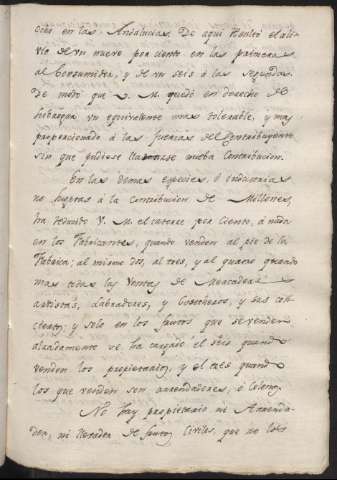 ocho en las Andalucias. De aqui resultó el ali-
vio de un nueve por ciento en las primeras
al Consumidor, y de un seis à las segundas
De modo que V. M. quedó en derecho de
un equivalente mas tolerable, y mas
proporcionado à las fuerzas del Contribuyente
sin que pudiese llamarse nueba Contribucion.
En las demas especies, ò industrias
no sugetas à la contribucion de Millones,
ha reducido V. M. el catorce por ciento, à nada
en los Fabricantes, quando venden al pie de la
Fabrica; al mismo dos, al tres, y al quatro quando
mas todas las Ventas de Mercaderes
artistas, Labradores, y Cosecheros, y sus
y solo en los frutos que se venden
se ha cargado el seis quando
venden los propietarios, y el tres quando
los que venden son arrendadores, ò Colonos.
No hay propietario ni Arrenda-
dor, ni de frutos Civiles, que no